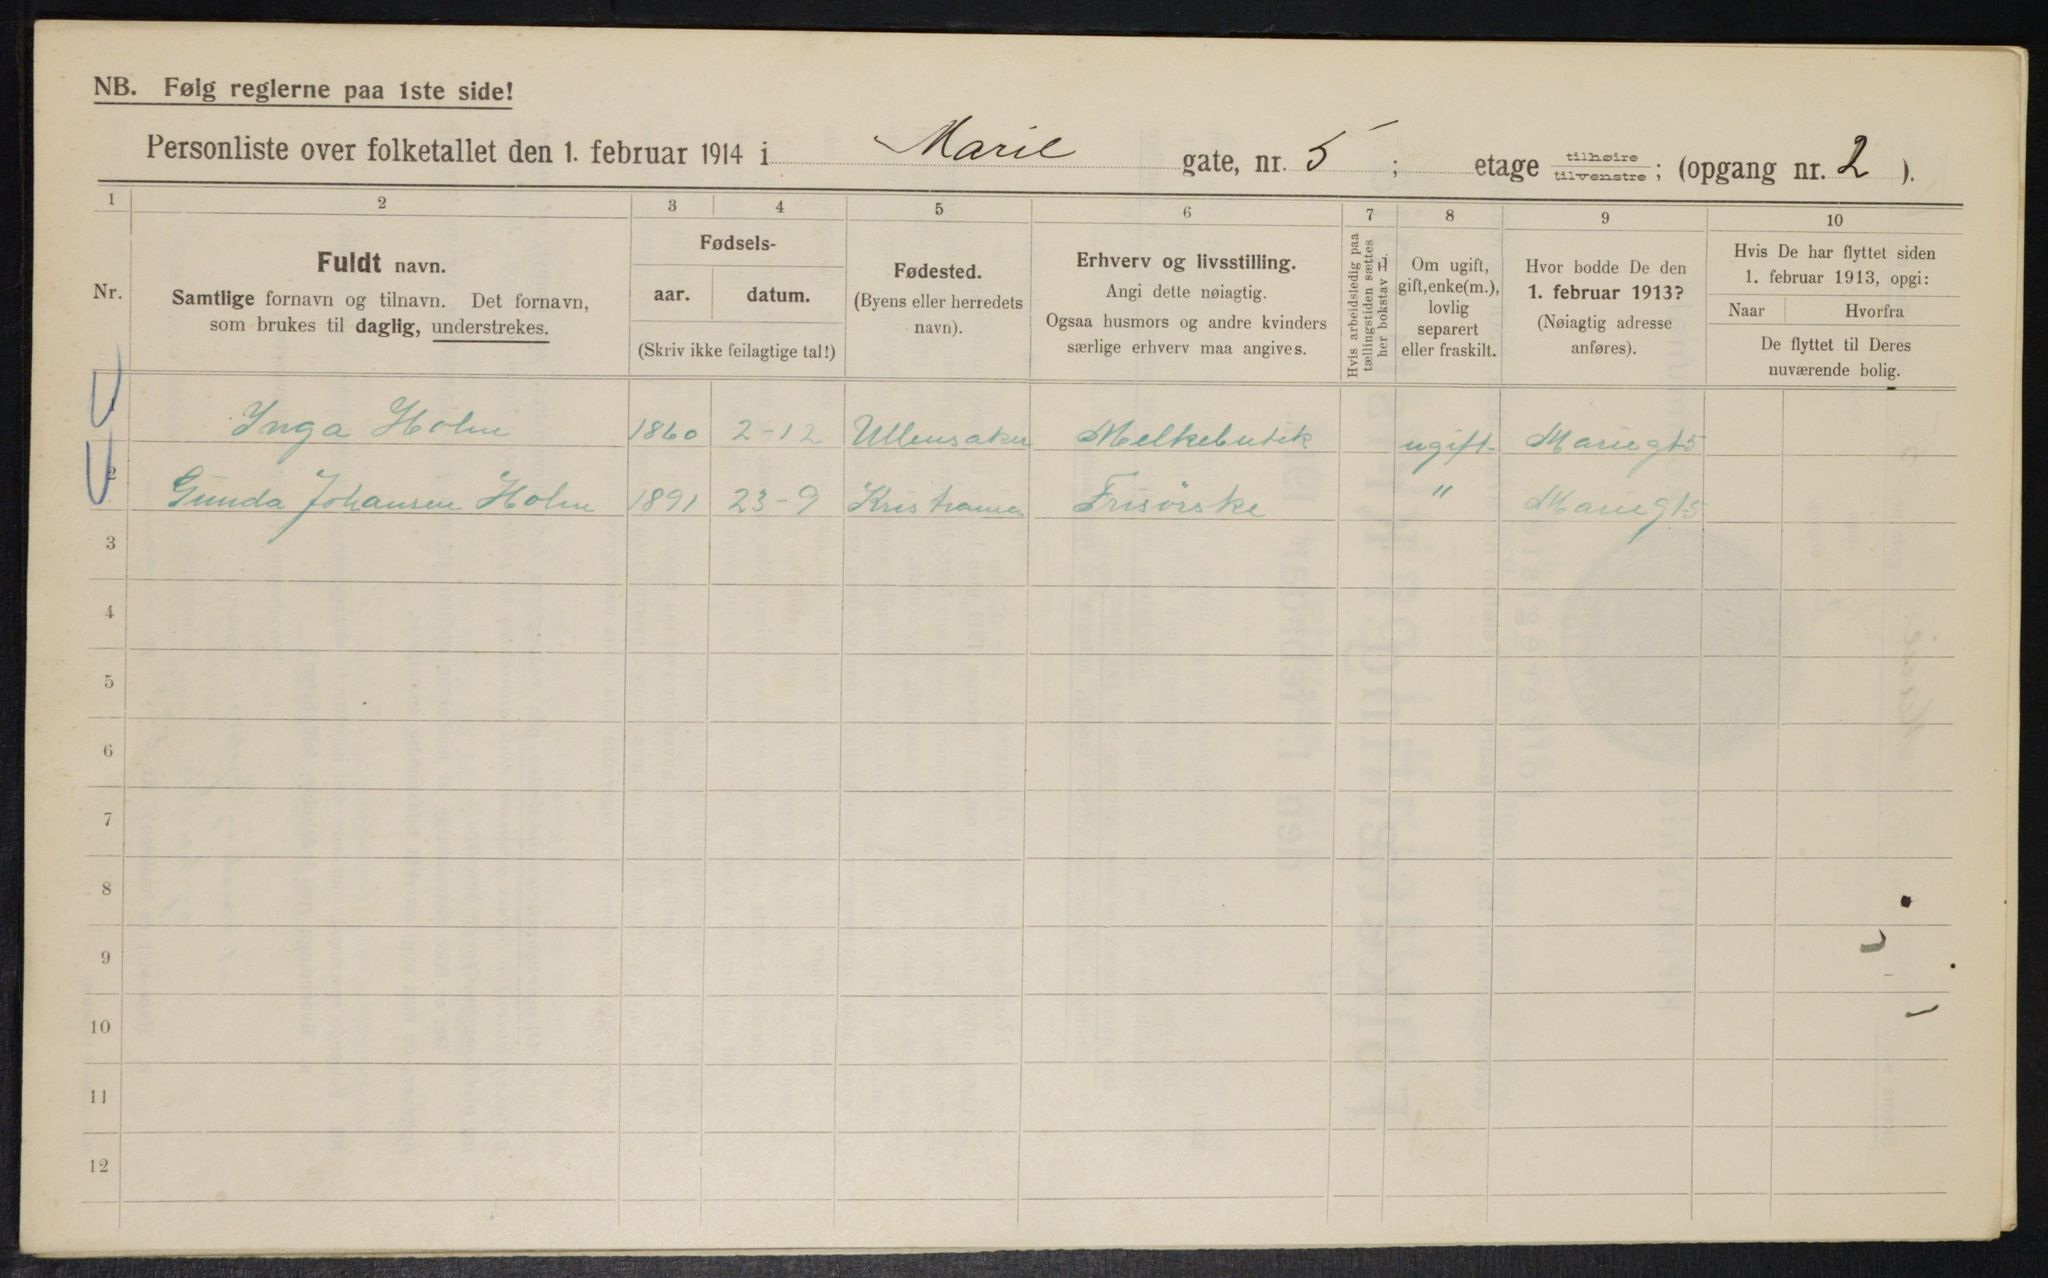 NB. Følg reglerne paa 1ste side!
Personliste over folketallet den 1. februar 1914 i Marie gate, nr. 5 ; etage tilhøire tilvenstre ; (opgang nr. 2 ).
1 2 3 4 5 6 7 8 9 10
Nr.
Fuldt navn.
Samtlige fornavn og tilnavn. Det fornavn,
som brukes til daglig, understrekes.
Fødsels-
aar. datum.
(Skriv ikke feilagtige tal!)
Fødested.
(Byens eller herredets
navn).
Erhverv og livsstilling.
Angi dette nøiagtig.
Ogsaa husmors og andre kvinders
særlige erhverv maa angives.
Hvis arbeidsledig paa
tællingstiden sættes
her bokstav L.
Om ugift,
gift, enke(m.),
lovlig
separert
eller fraskilt.
Hvor bodde De den
1. februar 1913?
(Nøiagtig adresse
anføres).
Hvis De har flyttet siden
1. februar 1913, opgi:
Naar Hvorfra
De flyttet til Deres
nuværende bolig.
1 Inga Holm 1860 2-12 Ullensaker Melkebutik ugift Mariegt 5
2 Gunda Johansen Holm 1891 23-9 Kristiania Frisørske " Mariegt 5
3
4
5
6
7
8
9
10
11
12